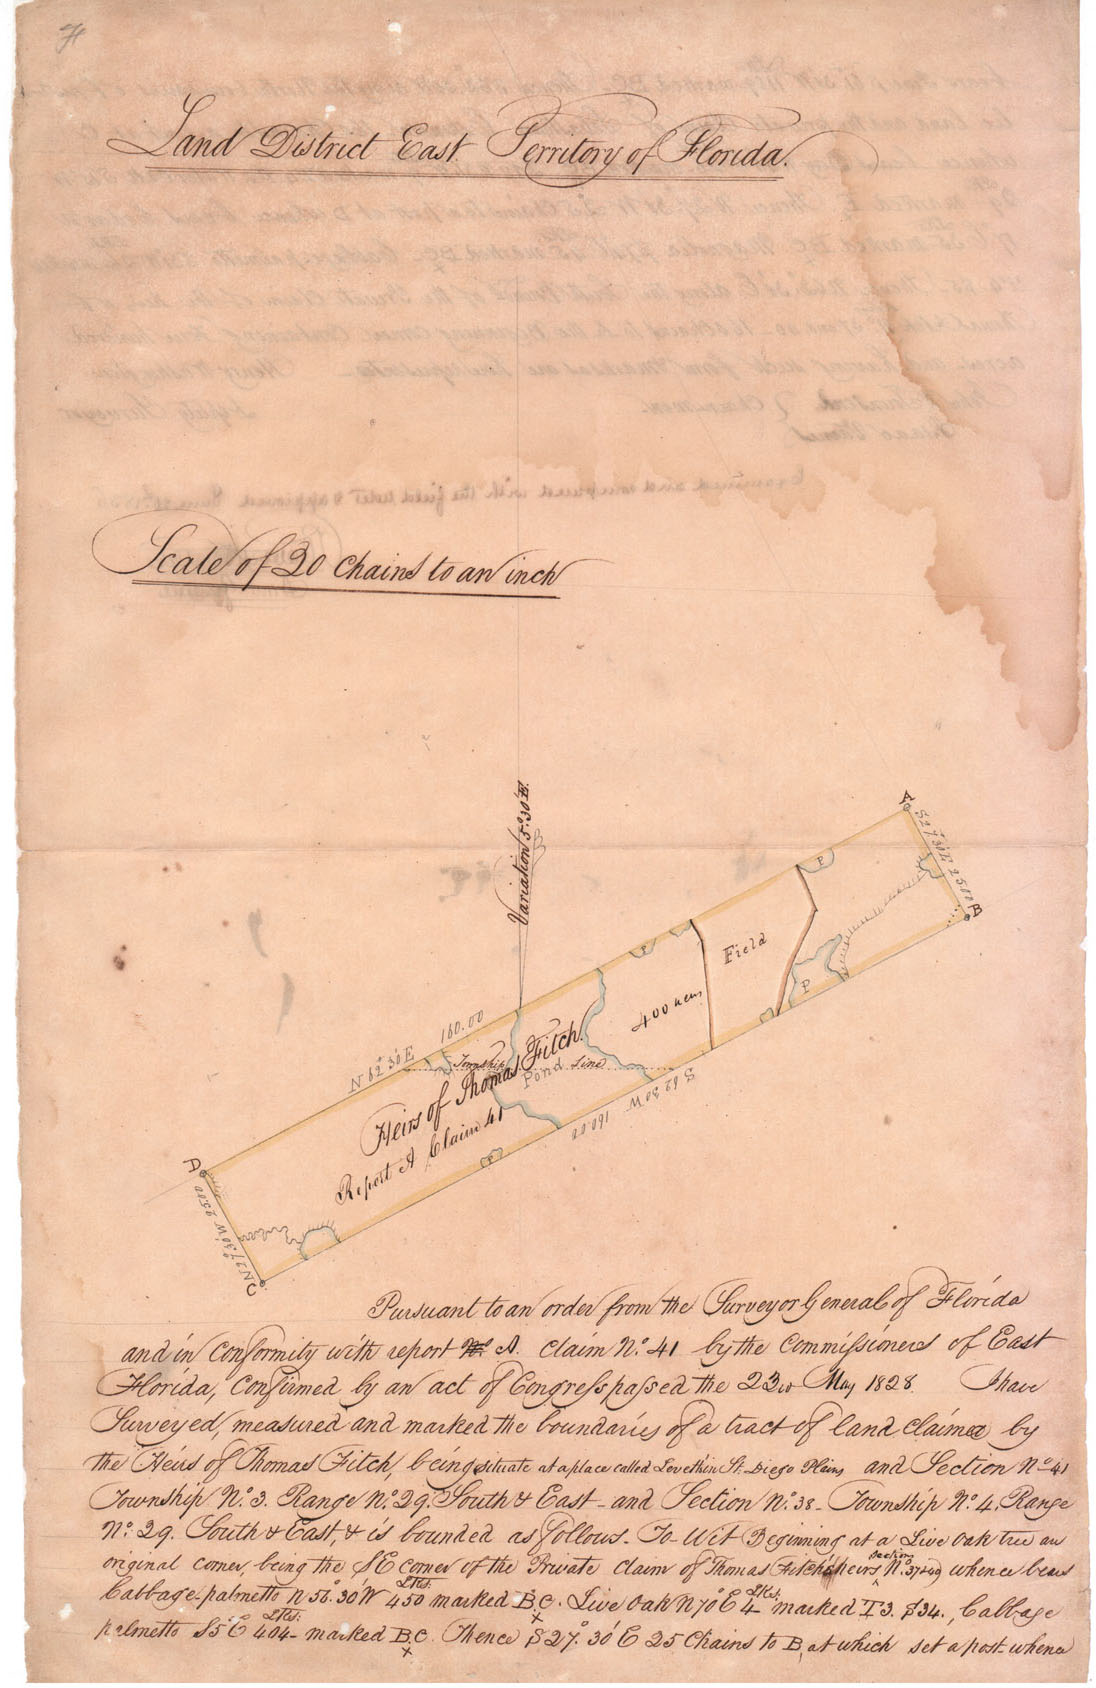 Land District East Territory of Florida.
Scale of 20 Chains to an inch
Variation 5°.30'E.
A
S27°30'E 25.00
B
P
Field
P
P
400 acres
160.00
N 62°30'E
Township
Line
Pond
Heirs of Thomas Fitch.
Report A Claim 41
S 62 30 W
160.00
P
D
N27°.30'W 25.00
C
Pursuant to an order from the Surveyor General of Florida
and in conformity with report A. claim No. 41 by the Commissioners of East
Florida, confirmed by an act of Congress passed the 23rd May 1828. I have
Surveyed, measured and marked the boundaries of a tract of land claimed by
the Heirs of Thomas Fitch, being situate at a place called St. Diego Plains and Section No. 41
Township No. 3. Range No. 29. South & East - and Section No. 38 - Township No. 4, Range
No. 29. South & East, & is bounded as follows. To Wit Beginning at a Live oak tree an
original corner, being the SE corner of the Private Claim of Thomas Fitch's heirs Section No. whence bears
Cabbage palmetto N 56°.30'W 450 Lks. marked B.C. X Live Oak N70°E 4 Lks. marked T3. S34., Cabbage
palmetto S5°E 404 Lks. marked B.C. X Thence S27°.30'E 25 Chains to B, at which set a post whence